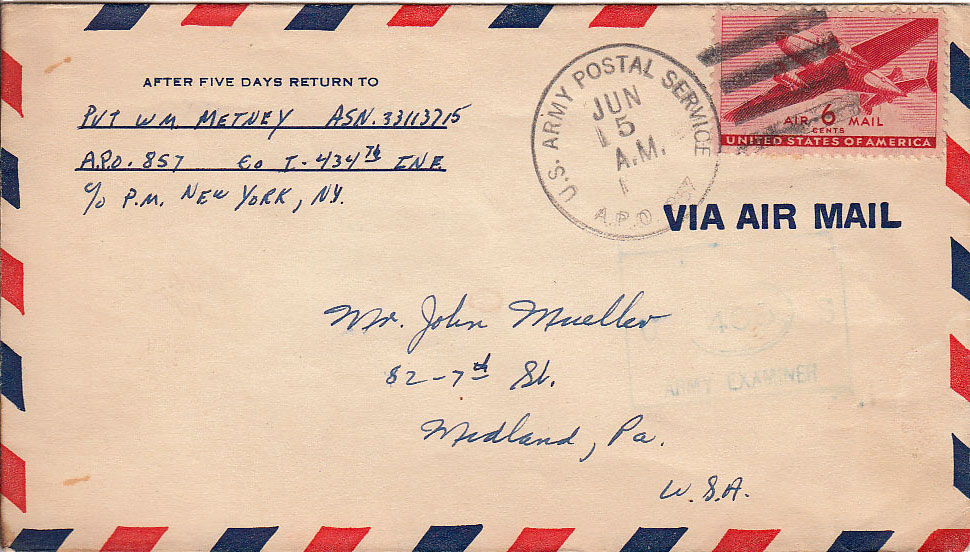 AFTER FIVE DAYS RETURN TO
PVT WM. METNEY ASN. 33113715
A.P.O. 857 Co I. - 434TH INF.
c/o P.M. NEW YORK, NY.
U.S. ARMY POSTAL SERVICE
JUN
15
A.M.
A.P.O. 857
AIR 6 MAIL
CENTS
UNITED STATES OF AMERICA
VIA AIR MAIL
Mr. John Mueller
82-7th St.
Midland, Pa.
U.S.A.
ARMY EXAMINER